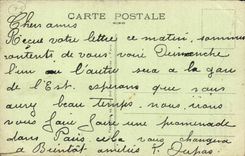 CARTE POSTALE
Chers amis
Recue votre lettre ce matin, sommes
contents de vous voir Dimanche
l'un ou l'autre sera a la gare
de l'Est. esperons que nous
aurez beau temps, nous vous
faire une promenade
dans Paris cela vous changera
a Bientôt amitiés